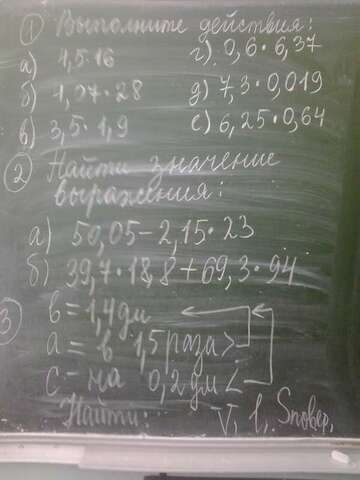 ① Выполните действия:
а) 4,5·16 г) 0,6·6,37
б) 1,07·28 д) 7,3·0,019
в) 3,5·1,9 е) 6,25·0,64
② Найти значение
выражения:
а) 50,05-2,15·23
б) 39,7·18,8+69,3·94
③ в=1,4дм
а = в 1,5 раза >
с = на 0,2 дм <
Найти: V, l, Sповер.